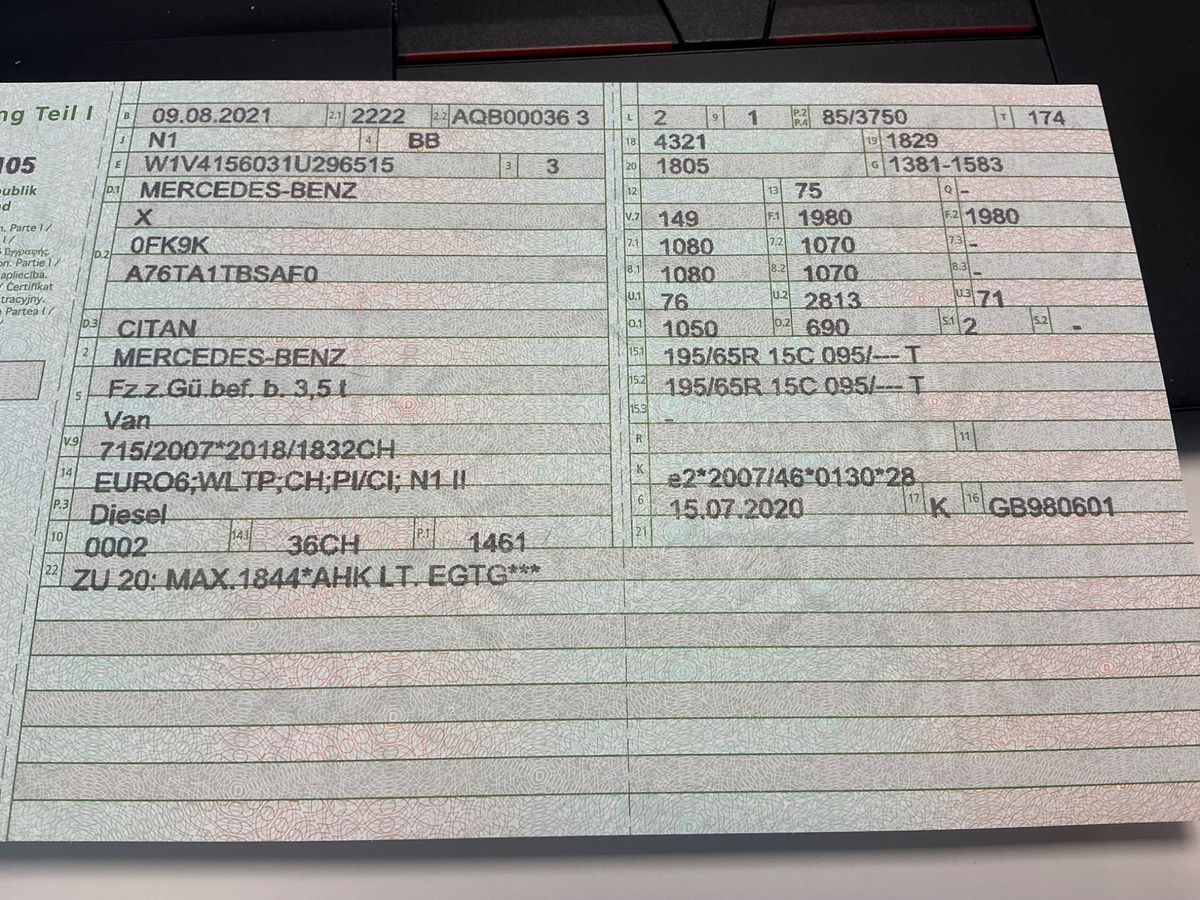 ng Teil I
105
ublik
d
n. Parte I /
I /
Εγγραφής
on. Partie I /
apliecība.
/ Certifikat
tracyjny.
Partea I /
B 09.08.2021 2.1 2222 2.2 AQB00036 3
J N1 4 BB
E W1V4156031U296515 3 3
D.1 MERCEDES-BENZ
X
D.2 0FK9K
A76TA1TBSAF0
D.3 CITAN
2 MERCEDES-BENZ
5 Fz.z.Gü.bef. b. 3,5 t
Van
V.9 715/2007*2018/1832CH
14 EURO6;WLTP;CH;PI/CI; N1 II
P.3 Diesel
10 0002 14.1 36CH P.1 1461
22 ZU 20: MAX.1844*AHK LT. EGTG***
L 2 9 1 P.2 P.4 85/3750 T 174
18 4321 19 1829
20 1805 G 1381-1583
12 13 75 Q -
V.7 149 F.1 1980 F.2 1980
7.1 1080 7.2 1070 7.3 -
8.1 1080 8.2 1070 8.3 -
U.1 76 U.2 2813 U.3 71
O.1 1050 O.2 690 S.1 2 S.2 -
15.1 195/65R 15C 095/--- T
15.2 195/65R 15C 095/--- T
15.3 -
R 11
K e2*2007/46*0130*28
6 15.07.2020 17 K 16 GB980601
21